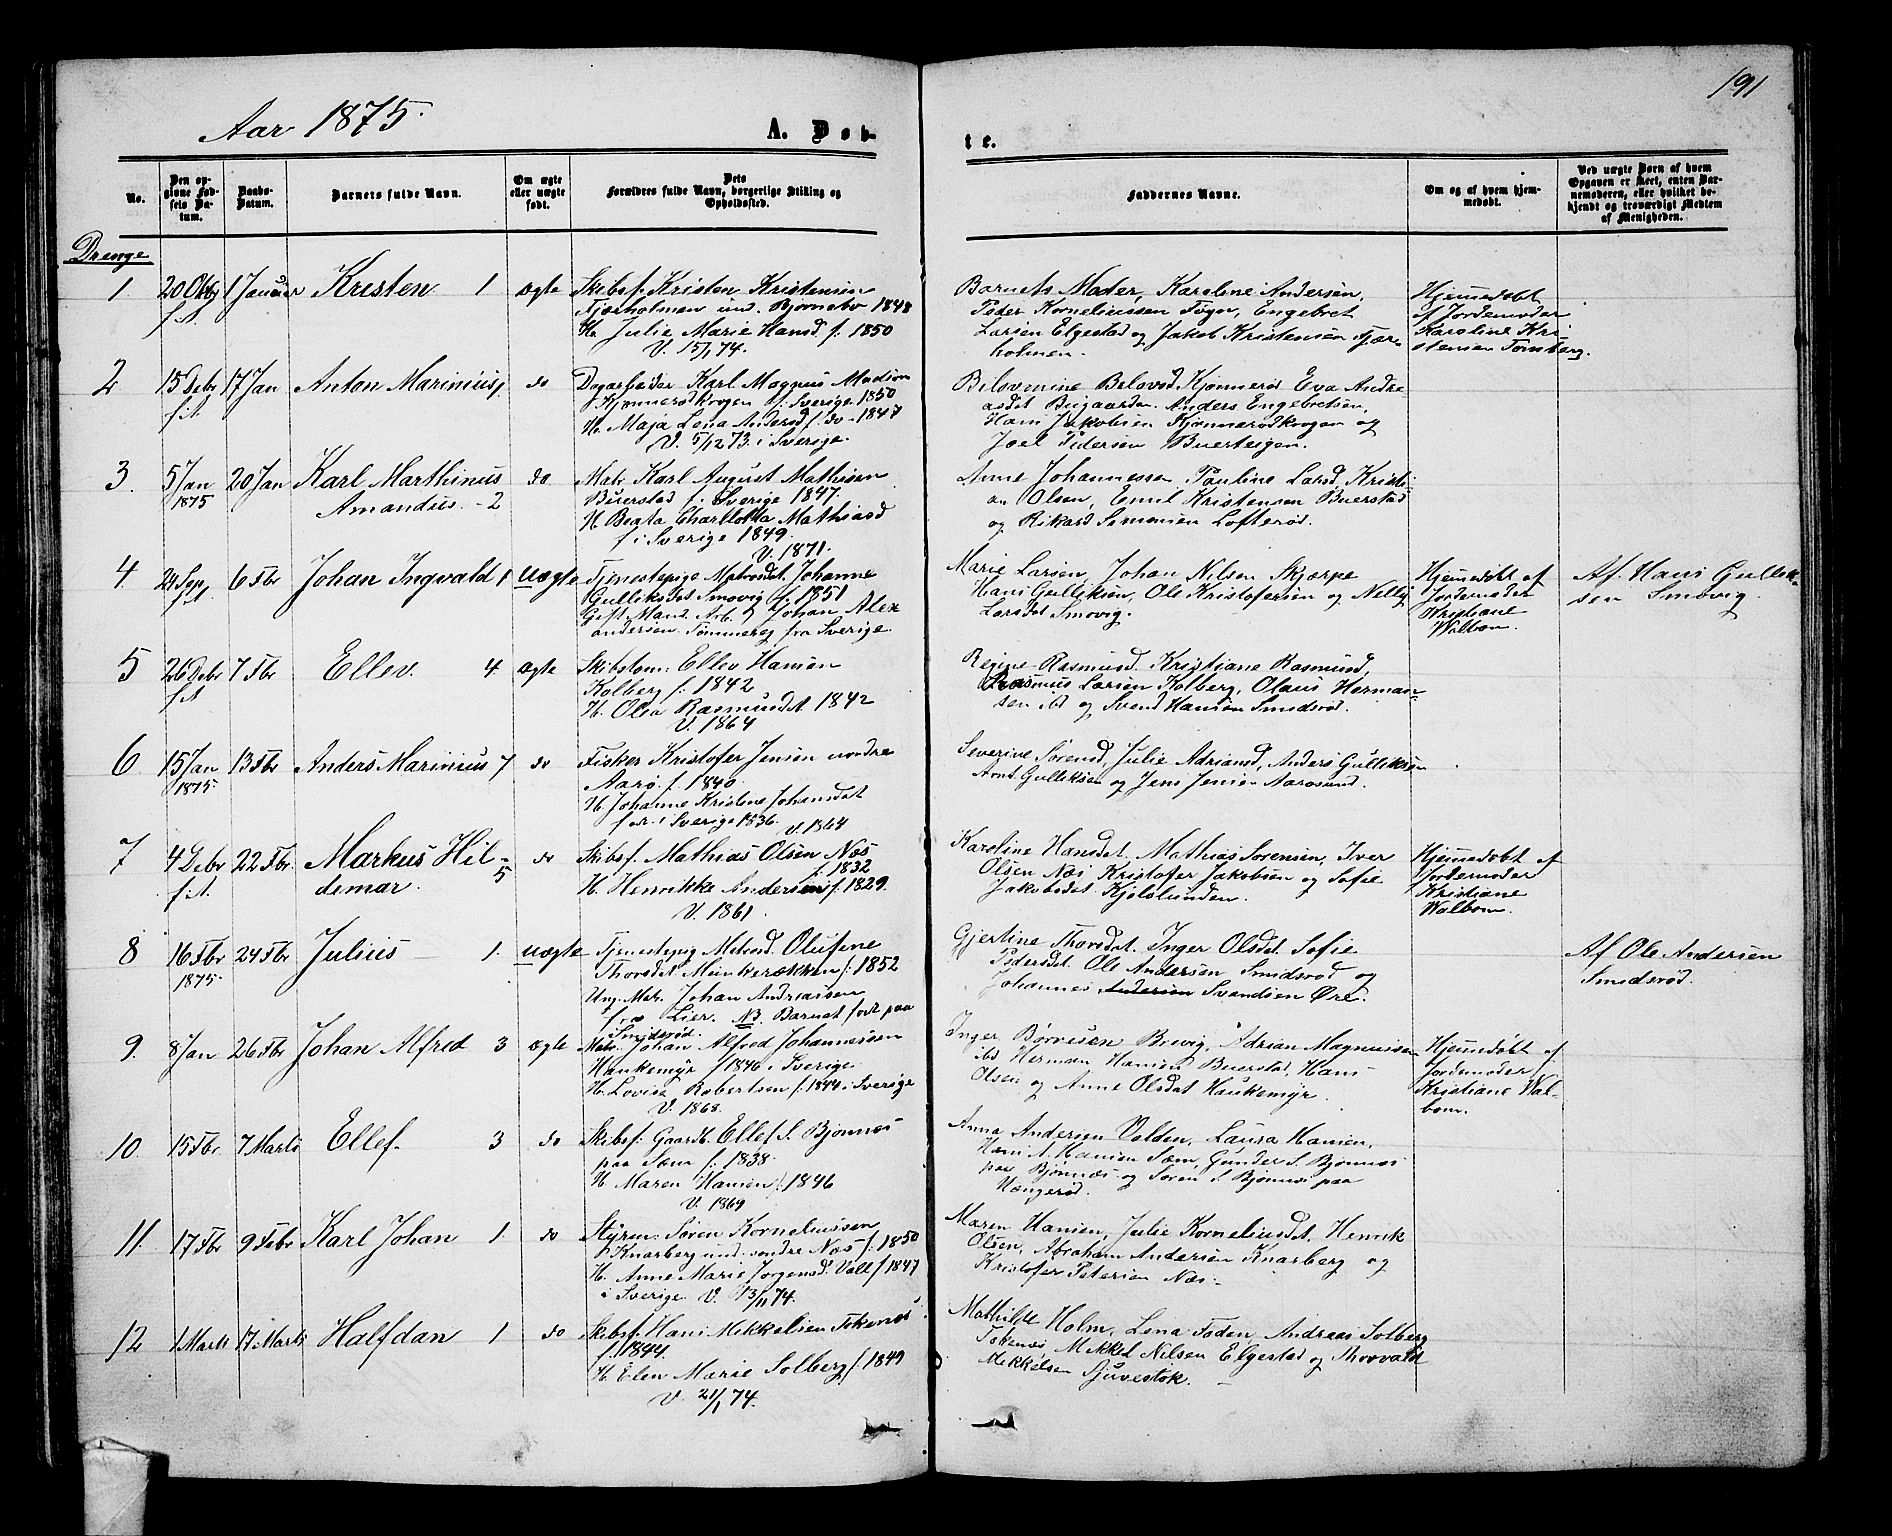 191
Aar 1875.
A. Døb-
te.
No.
Den opgivne Fødsels Datum.
Daabs-Datum.
Barnets fulde Navn.
Om ægte eller uægte født.
Dets Forældres fulde Navn, borgerlige Stilling og Opholdssted.
Faddernes Navne.
Om og af hvem hjemmedøbt.
Ved uægte Børn af hvem Opgaven er skeet, enten Barnemoderen, eller hvilket bekjendt og troværdigt Medlem af Menigheden.
Drenge
1 20 Oktbr f.A. 1 Januar Kristen 1 ægte
Skibsf. Kristen Kristensen
Fjærholmen und. Bjørnebo 1848
H. Julie Marie Hansd f. 1850
V. 15/1 74.
Barnets Moder, Karoline Andersen,
Peder Korneliussen Føyn, Engebret
Larsen Elgestad og Jakob Kristensen Fjær-
holmen.
Hjemmedøbt
af Jordemoder
Karoline Kri-
stensen Tønsberg.
2 15 Debr f.A. 17 Jan Anton Marinius 1 do
Dagarbeider Karl Magnus Madsen
Kjønnerødkrogen f. i Sverige 1850
H. Maja Lena Andersd f. do 1847
V. 5/12 73. i Sverige.
Belovenine Belovsd. Kjønnerød Eva Andre
asdet Bugaarden. Anders Engebretsen,
Hans Jakobsen Kjønnerødkrogen og
Joel Pedersen Buerteigen.
3. 5 Jan 1875 20 Jan Karl Marthinus
Amandus. - 2 do
Matr. Karl August Mathisen
Buerstad f. i Sverige 1847.
H. Beata Charlotta Mathiasd
f. i Sverige 1849.
V. 1871.
Anne Johannessen Pauline Larsd, Kristi-
an Olsen, Emil Kristensen Buerstad
og Rikard Simonsen Lofterød.
4. 24 Sep. f.A. 6 Fbr Johan Ingvald 1 uægte
Tjenestepige Matrosdt. Johanne
Gulliksdet Smøvig f. 1851
Gift Mand Arb. Johan Alex
andersen Tømmereg fra Sverige.
Marie Larsen, Johan Nilsen Skjærpe
Hans Gulliksen, Ole Kristofersen og Nelly
Larsdet Smøvig.
Hjemmedøbt af
Jordemoder
Kristiane
Walbom.
Af Hans Gullik-
sen Smøvig.
5 26 Debr f.A. 7 Fbr Ellev. 4. ægte
Skibstøm: Ellev Hansen
Kolberg f. 1842
H. Olea Rasmusdet 1842
V. 1864
Regine Rasmusd. Kristiane Rasmusd,
Rasmus Larsen Kolberg, Olaus Herman-
sen ibd og Svend Hansen Smidsrød.
6 15 Jan 1875. 13 Fbr Anders Marinius 7 do
Fisker Kristofer Jensen nordre
Aarø f. 1840.
H. Johanne Kristine Johansdet
før. i Sverige 1836. V. 1864
Severine Sørensd, Julie Adriansd, Anders Gulliksen
Arnt Gulliksen og Jens Jensen Aarøsund.
7 4 Debr f.A. 22 Fbr Markus Hil-
demar. 5 do
Skibsf. Mathias Olsen Næs
f. 1832
H. Henrikke Andersen f. 1829.
V. 1861.
Karoline Hansdet, Mathias Sørensen, Iver
Olsen Næs Kristofer Jakobsen og Sofie
Jakobsdet Kjølslunden.
Hjemmedøbt af
Jordemoder
Kristiane
Walbom.
8 16 Fbr 1875. 24 Fbr Julius 1. uægte
Tjenestepig Matrosd. Olufine
Thorsdet Munkerækken f. 1852
Ung. Matr. Johan Andreassen
fra Lier. NB. Barnet født paa
Smidsrød.
Gjertine Thorsdet. Inger Olsdet Sofie
Pedersdet. Ole Andersen Smidsrød og
Johannes Andersen Svendsen Øre.
Af Ole Andersen
Smidsrød.
9. 8 Jan 26 Fbr Johan Alfred 3 ægte
Matr. Johan Alfred Johannessen
Haukemyr f 1846 i Sverige
H. Lovise Robertsen f. 1844 i Sverige
V. 1868.
Inger Børresen Brevig, Adrian Magnussen
ibd Herman Hansen Buerstad, Hans
Olsen og Anne Olsdat Haukemyr.
Hjemmedøbt af
Jordemoder
Kristiane Wal-
bom.
10. 15 Fbr. 7 Marts Ellef. 3 do
Skibsf: Gaardb. Ellef S. Bjønnes
paa Sæm f. 1838.
H. Maren Hansen f. 1846
V. 1869
Anna Andersen Velden, Laura Hansen,
Hans A. Hansen Sæm, Gunder S. Bjønnes
paa Bjønnæs og Søren S. Bjønnes paa
Hængerød.
11. 17 Fbr 9 Febr Karl Johan 1. do
Styrm: Søren Korneliussen
Knarberg und. søndre Næs f. 1850
H. Anne Marie Jørgensd. Vall f 1847
i Sverige V. 13/11 74.
Maren Hansen, Julie Korneliusdet, Henrik
Olsen, Abraham Andersen Knarberg og
Kristofer Petersen Næs.
12 1 Marts 17 Marts Halfdan 1 do
Skibsf. Hans Mikkelsen Tokenes
f. 1844.
H. Elen Marie Solberg f. 1849
V. 21/1 74.
Mathilde Holm, Lena Foden, Andreas Solberg
Tokenes Mikkel Nilsen Elgestad og Thorvald
Mikkelsen Sjuvestok.